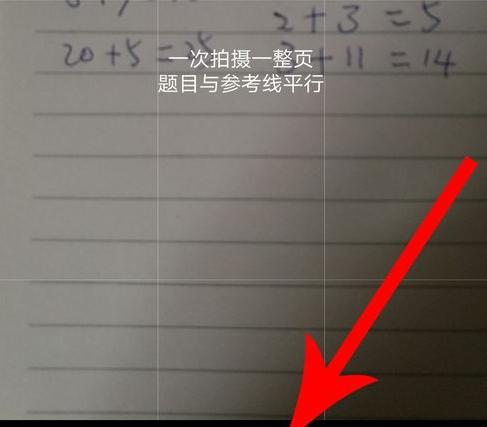 2+3=5
20+5=25
3+11=14
一次拍摄一整页
题目与参考线平行